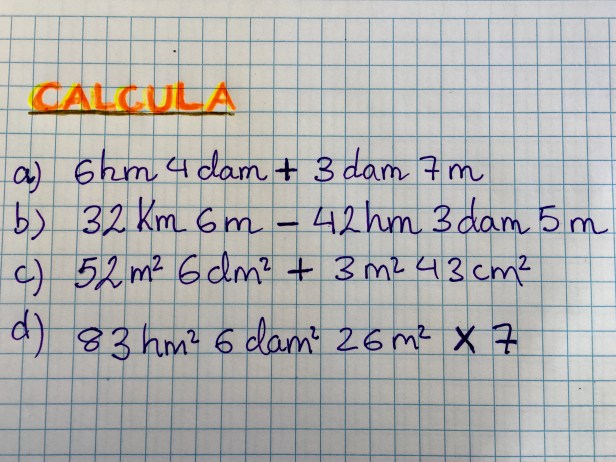 CALCULA
a) 6hm 4dam + 3dam 7m
b) 32Km 6m - 42hm 3dam 5m
c) 52m² 6dm² + 3m² 43cm²
d) 83hm² 6dam² 26m² x 7